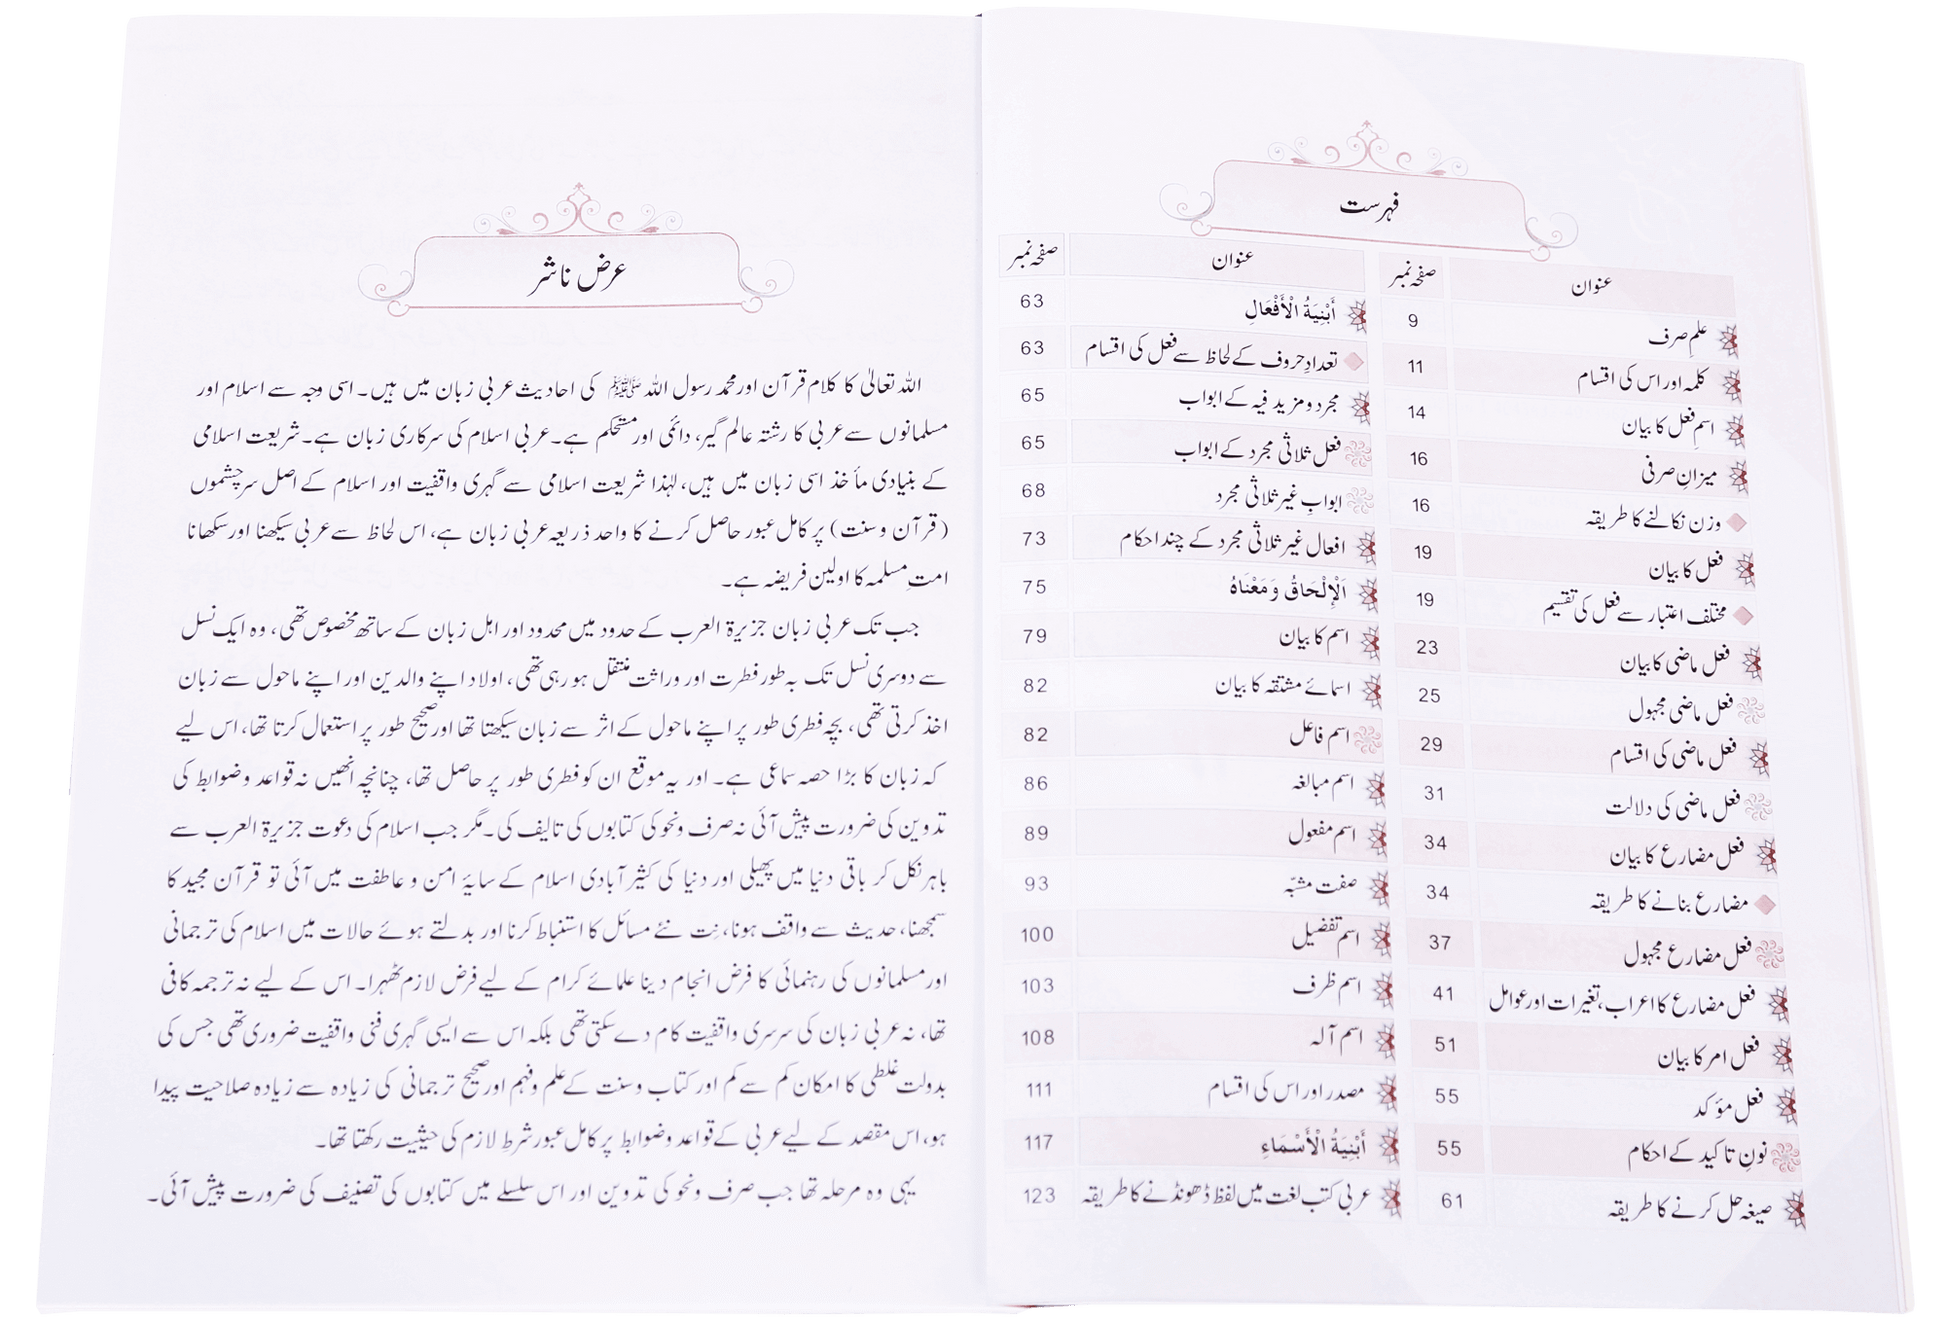 فہرست
عنوان صفحہ نمبر
علمِ صرف 9
کلمہ اور اس کی اقسام 11
اسمِ فعل کا بیان 14
میزانِ صرفی 16
وزن نکالنے کا طریقہ 16
فعل کا بیان 19
مختلف اعتبار سے فعل کی تقسیم 19
فعل ماضی کا بیان 23
فعل ماضی مجہول 25
فعل ماضی کی اقسام 29
فعل ماضی کی دلالت 31
فعل مضارع کا بیان 34
مضارع بنانے کا طریقہ 34
فعل مضارع مجہول 37
فعل مضارع کا اعراب، تغیرات اور عوامل 41
فعل امر کا بیان 51
فعل مؤکد 55
نونِ تاکید کے احکام 55
صیغہ حل کرنے کا طریقہ 61
عنوان صفحہ نمبر
أَبْنِيَةُ الْأَفْعَالِ 63
تعدادِ حروف کے لحاظ سے فعل کی اقسام 63
مجرد و مزید فیہ کے ابواب 65
فعل ثلاثی مجرد کے ابواب 65
ابوابِ غیر ثلاثی مجرد 68
افعال غیر ثلاثی مجرد کے چند احکام 73
اَلْإِلْحَاقُ وَمَعْنَاهُ 75
اسم کا بیان 79
اسمائے مشتقہ کا بیان 82
اسم فاعل 82
اسم مبالغہ 86
اسم مفعول 89
صفت مشبّہ 93
اسم تفضیل 100
اسم ظرف 103
اسم آلہ 108
مصدر اور اس کی اقسام 111
أَبْنِيَةُ الْأَسْمَاءِ 117
عربی کتب لغت میں لفظ ڈھونڈنے کا طریقہ 123
عرض ناشر
اللہ تعالیٰ کا کلام قرآن اور محمد رسول اللہ ﷺ کی احادیث عربی زبان میں ہیں۔ اسی وجہ سے اسلام اور
مسلمانوں سے عربی کا رشتہ عالم گیر، دائمی اور مستحکم ہے۔ عربی اسلام کی سرکاری زبان ہے۔ شریعت اسلامی
کے بنیادی مآخذ اسی زبان میں ہیں، لہٰذا شریعت اسلامی سے گہری واقفیت اور اسلام کے اصل سرچشموں
(قرآن و سنت) پر کامل عبور حاصل کرنے کا واحد ذریعہ عربی زبان ہے، اس لحاظ سے عربی سیکھنا اور سکھانا
امتِ مسلمہ کا اولین فریضہ ہے۔
جب تک عربی زبان جزیرۃ العرب کے حدود میں محدود اور اہل زبان کے ساتھ مخصوص تھی، وہ ایک نسل
سے دوسری نسل تک بہ طور فطرت اور وراثت منتقل ہو رہی تھی، اولاد اپنے والدین اور اپنے ماحول سے زبان
اخذ کرتی تھی، بچہ فطری طور پر اپنے ماحول کے اثر سے زبان سیکھتا تھا اور صحیح طور پر استعمال کرتا تھا، اس لیے
کہ زبان کا بڑا حصہ سماعی ہے۔ اور یہ موقع ان کو فطری طور پر حاصل تھا، چنانچہ انھیں نہ قواعد و ضوابط کی
تدوین کی ضرورت پیش آئی نہ صرف و نحو کی کتابوں کی تالیف کی۔ مگر جب اسلام کی دعوت جزیرۃ العرب سے
باہر نکل کر باقی دنیا میں پھیلی اور دنیا کی کثیر آبادی اسلام کے سایۂ امن و عاطفت میں آئی تو قرآن مجید کا
سمجھنا، حدیث سے واقف ہونا، نِت نئے مسائل کا استنباط کرنا اور بدلتے ہوئے حالات میں اسلام کی ترجمانی
اور مسلمانوں کی رہنمائی کا فرض انجام دینا علمائے کرام کے لیے فرض لازم ٹھہرا۔ اس کے لیے نہ ترجمہ کافی
تھا، نہ عربی زبان کی سرسری واقفیت کام دے سکتی تھی بلکہ اس سے ایسی گہری فنی واقفیت ضروری تھی جس کی
بدولت غلطی کا امکان کم سے کم اور کتاب و سنت کے علم و فہم اور صحیح ترجمانی کی زیادہ سے زیادہ صلاحیت پیدا
ہو، اس مقصد کے لیے عربی کے قواعد و ضوابط پر کامل عبور شرطِ لازم کی حیثیت رکھتا تھا۔
یہی وہ مرحلہ تھا جب صرف و نحو کی تدوین اور اس سلسلے میں کتابوں کی تصنیف کی ضرورت پیش آئی۔